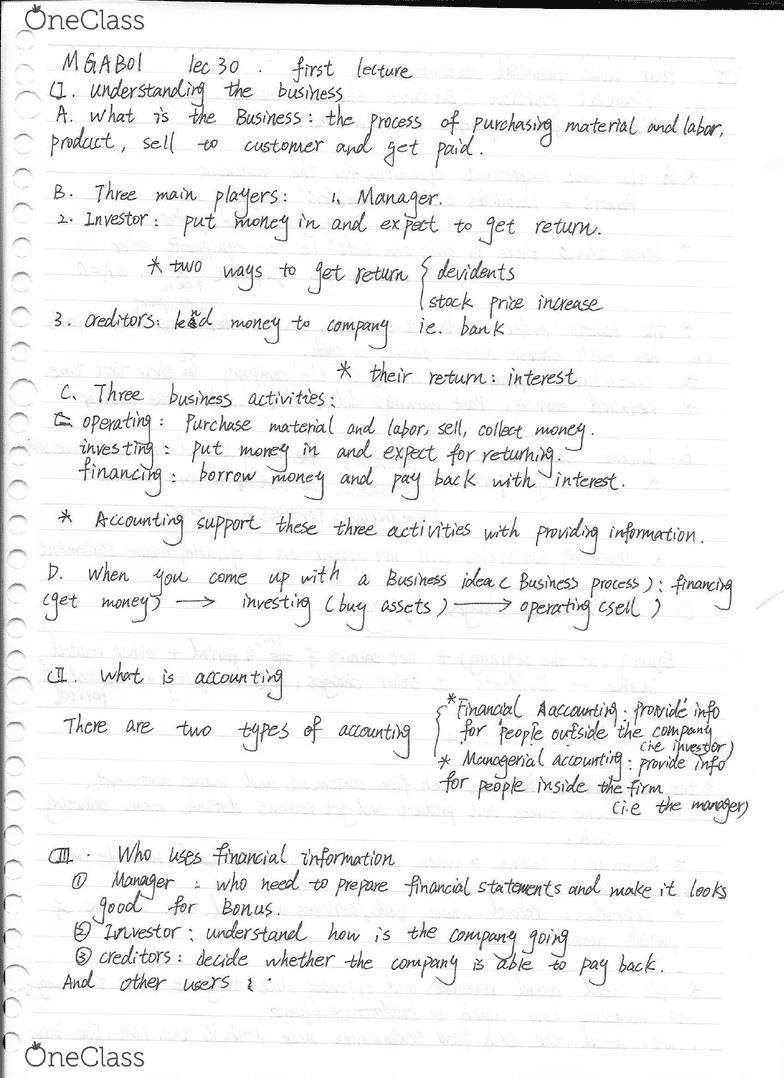 OneClass
MGAB01 lec 30 . first lecture
(I. understanding the business
A. What is the Business: the process of purchasing material and labor,
product, sell to customer and get paid.
B. Three main players: 1. Manager.
2. Investor: put money in and expect to get return.
* two ways to get return { devidents
stock price increase
3. creditors: lend money to company ie. bank
* their return: interest
C. Three business activities:
operating: Purchase material and labor, sell, collect money.
investing: put money in and expect for returning.
financing: borrow money and pay back with interest.
* Accounting support these three activities with providing information.
D. When you come up with a Business idea (Business process): financing
(get money) → investing (buy assets) → operating (sell)
(II. What is accounting
There are two types of accounting
{ * Financial Aaccounting: provide info
for people outside the company
(ie investor)
* Managerial accounting: provide info
for people inside the firm
(i.e the manager)
(III. Who uses financial information
① Manager: who need to prepare financial statements and make it looks
good for Bonus.
② Investor: understand how is the company going
③ creditors: decide whether the company is able to pay back.
And other users :
OneClass